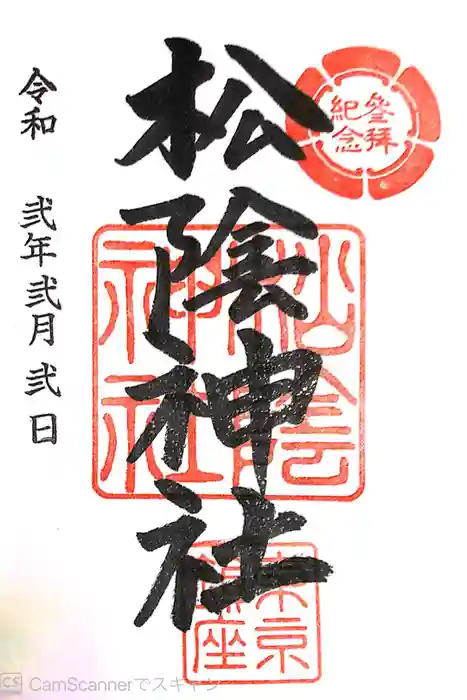 参拜
紀念
松陰神社
松陰
神社
東京
鎮座
令和 弐年弐月弐日
CamScannerでスキャン